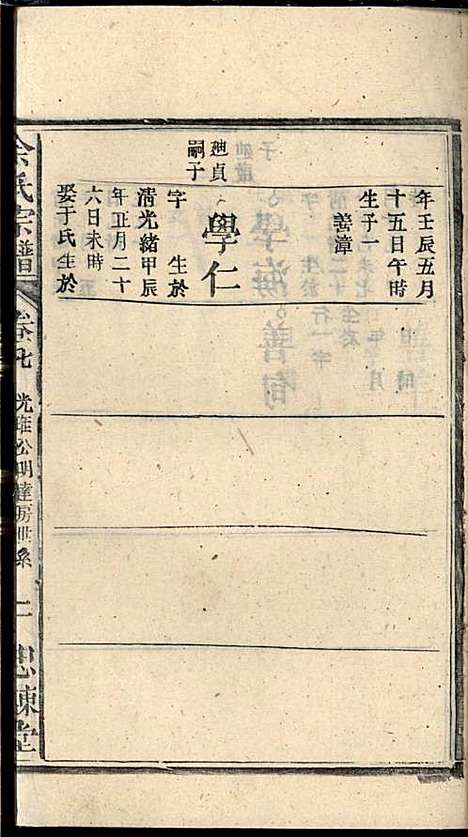 年壬辰五月
十五日午時
生子一
善漳
廸貞
嗣子
學仁
字 生於
清光緒甲辰
年正月二十
六日未時
娶于氏生於
余氏宗譜
卷七
光琟公明達房世系
二
忠諫堂